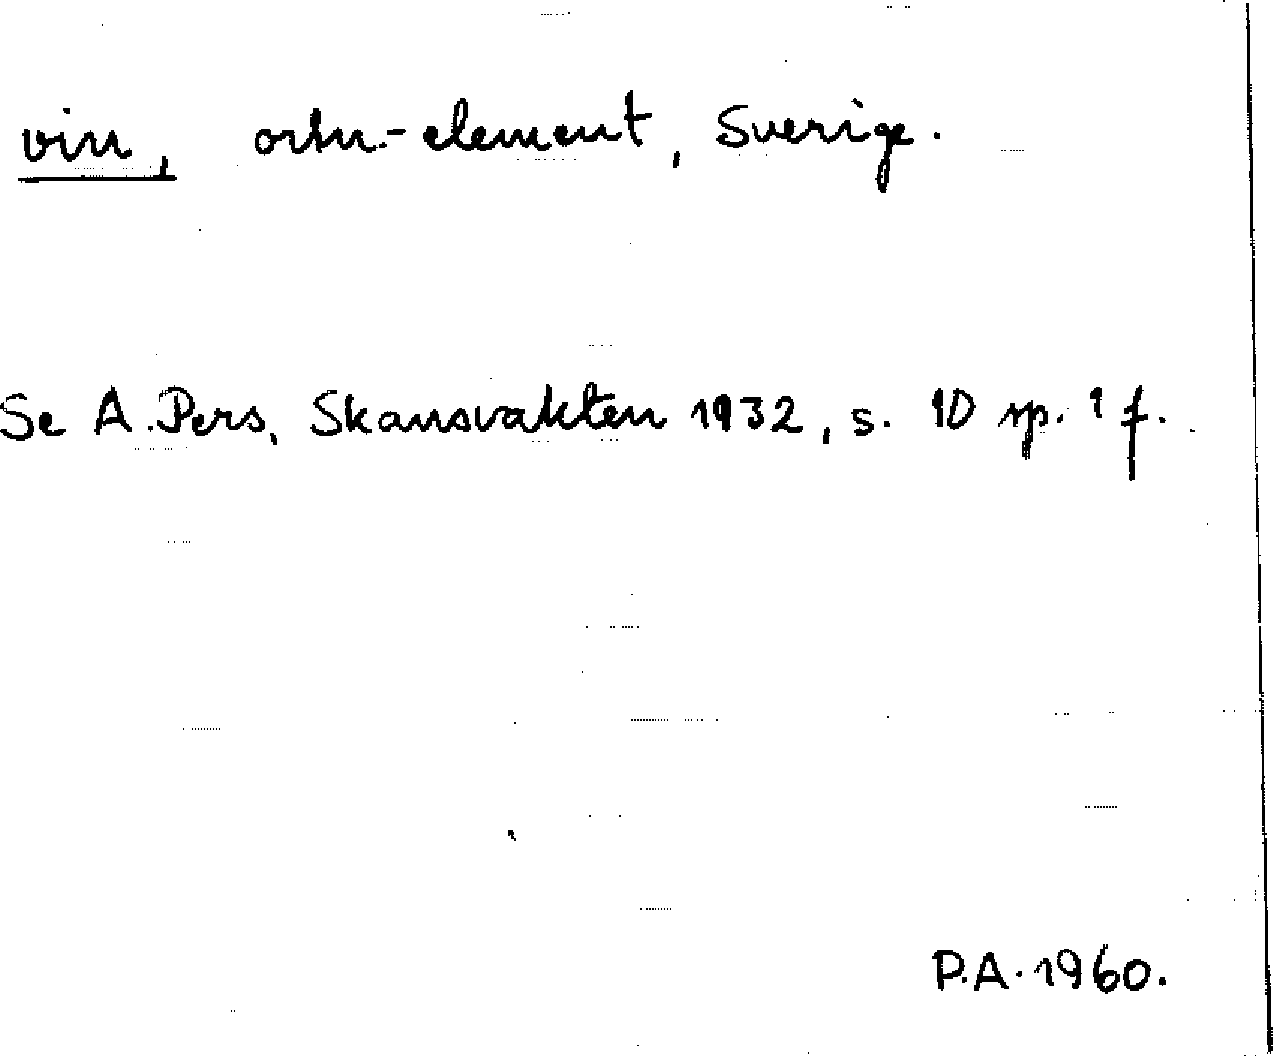 vin, ortn.-element, Sverige.
Se A. Pers, Skansvakten 1932, s. 10 sp. 1 f.
P.A. 1960.